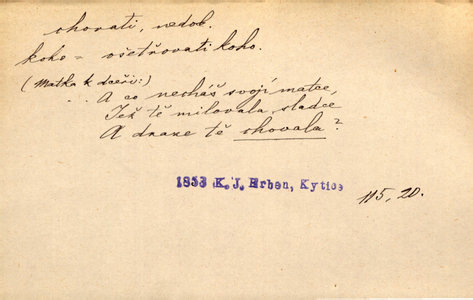 chovati, nedok.
koho = ošetřovati koho.
(Matka k dceři:)
.. A co necháš svojí matce,
Jež tě milovala sladce
A draze tě chovala?
1853 K. J. Erben, Kytice
115, 20.